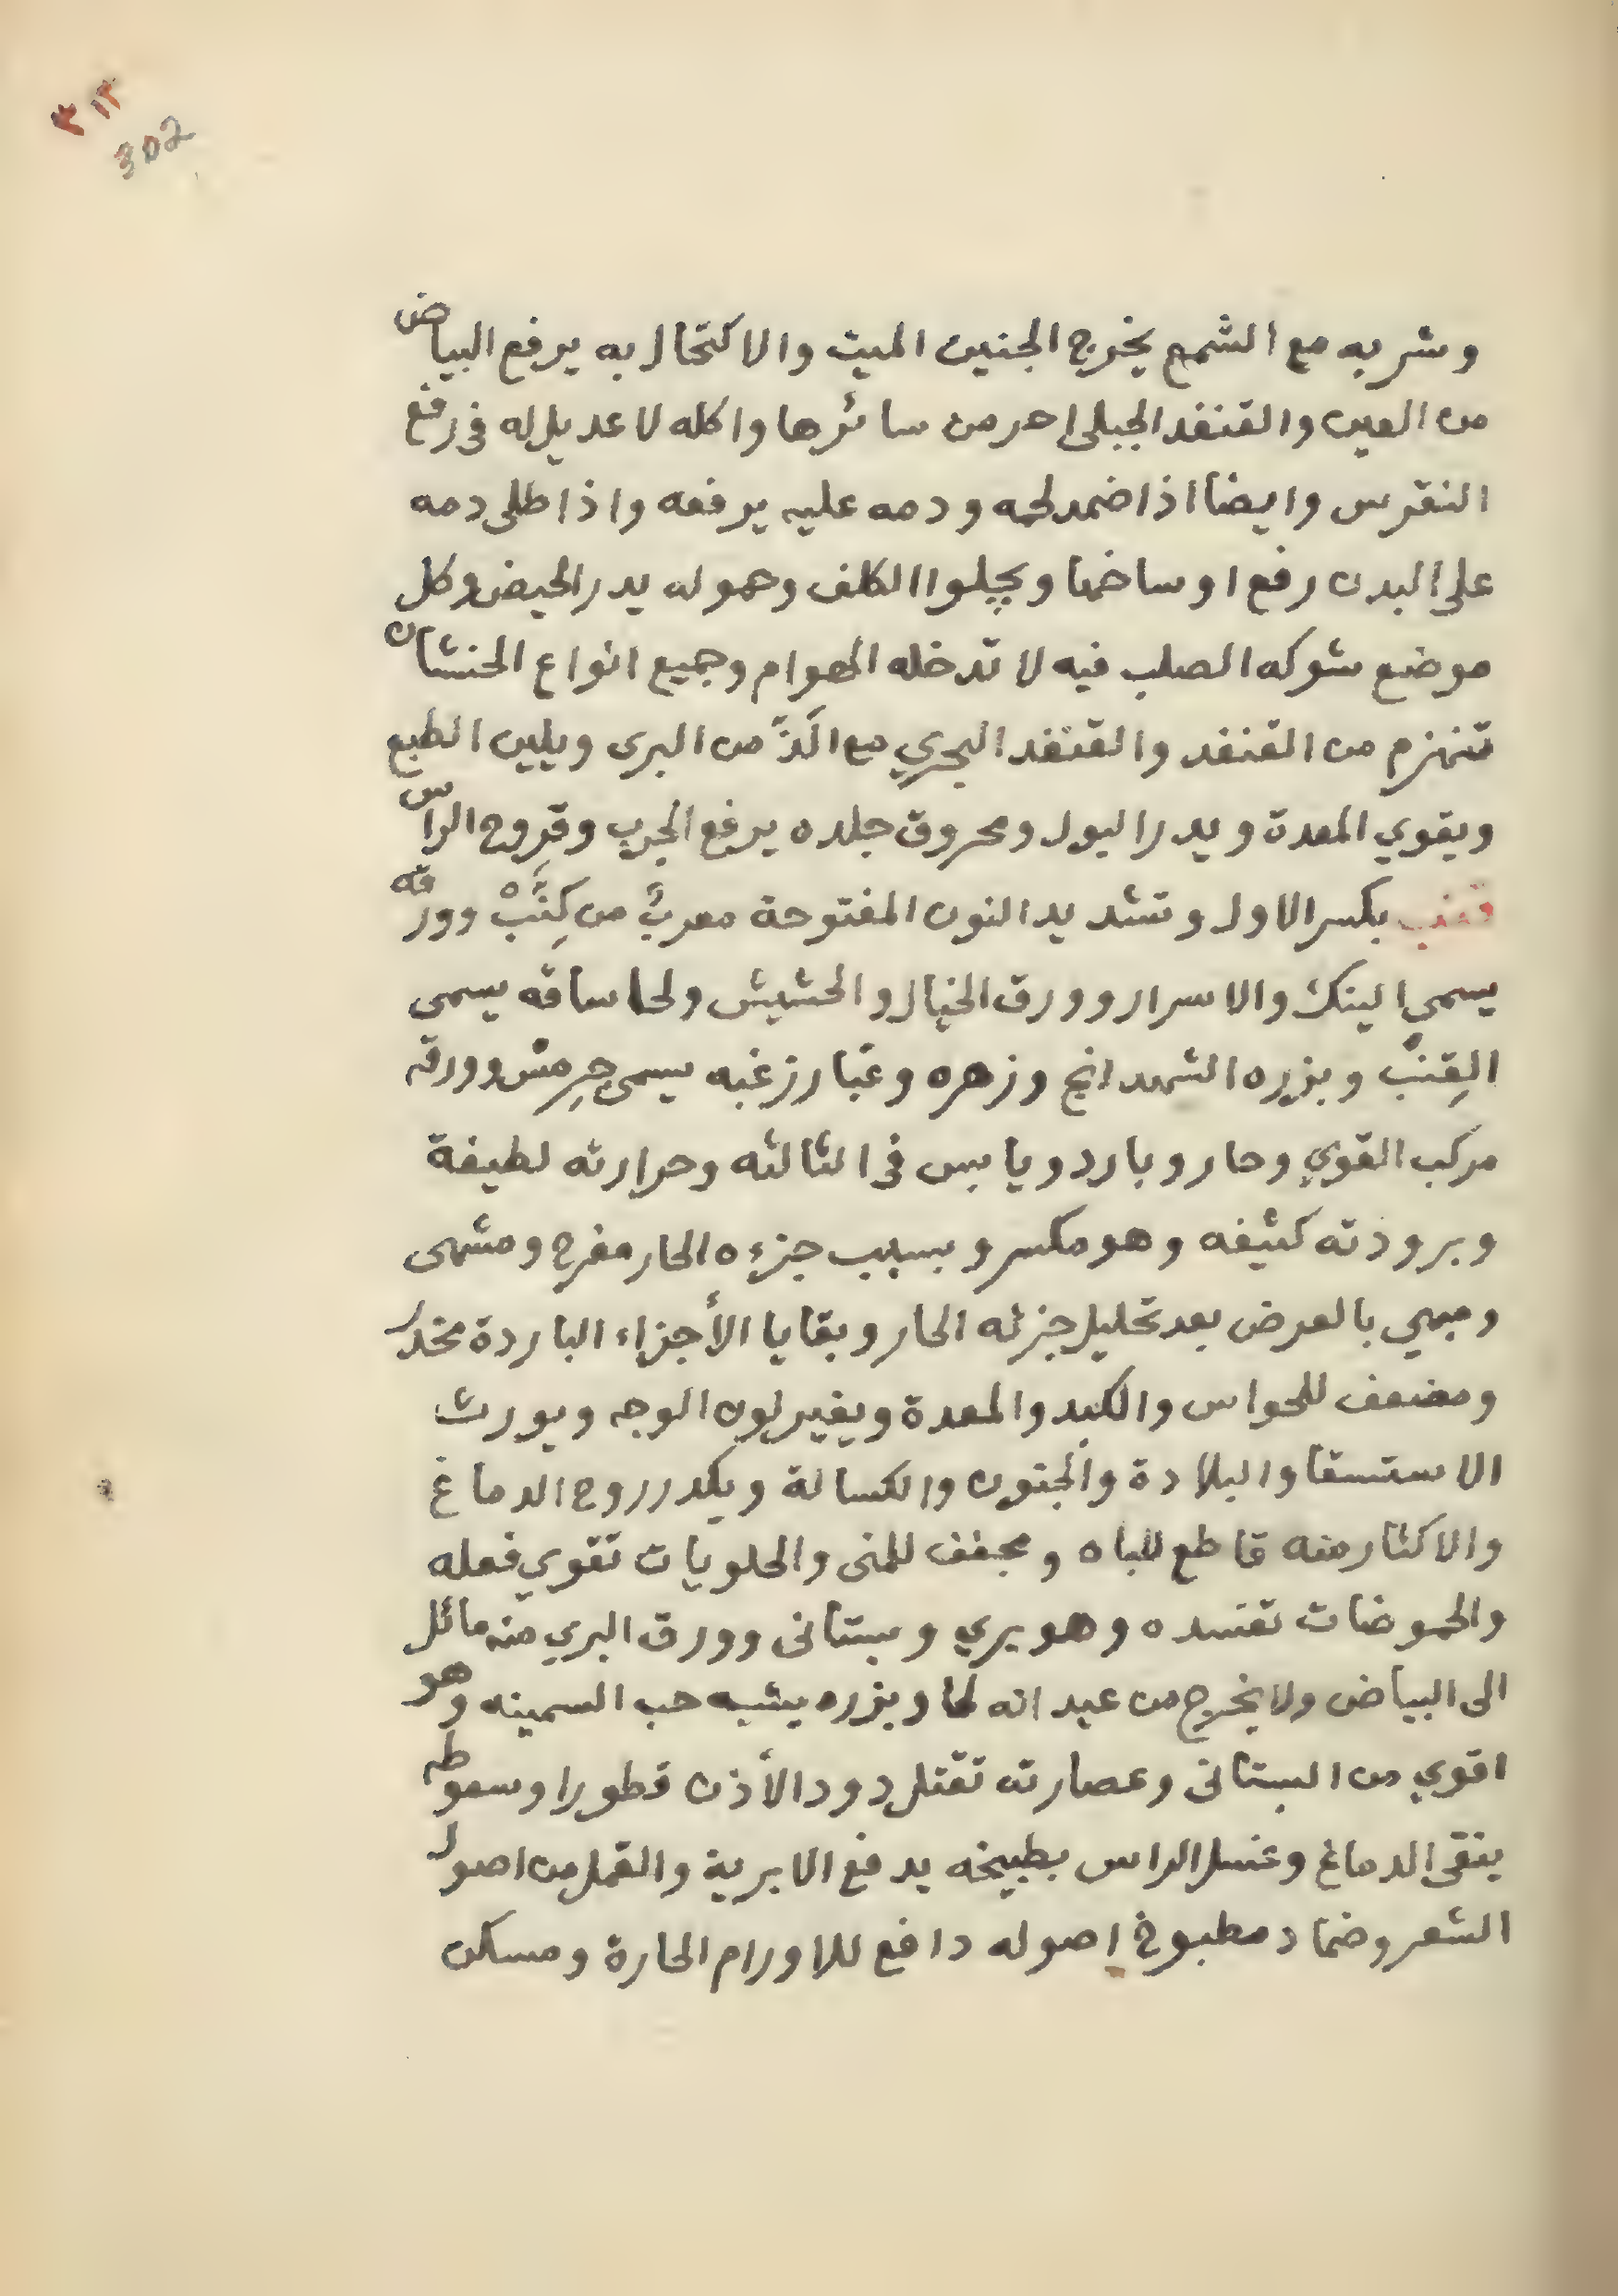 ٣١٣
302
وشربه مع الشمع يخرج الجنين الميت والاكتحال به يرفع البياض
من العين والقنفد الجبلى احر من سائرها واكله لا عديل له فى رفع
النقرس وايضا اذا ضمد لحمه ودمه عليه يرفعه واذا طلى دمه
على البدن رفع اوساخها ويجلوا الكلف وحموله يدر الحيض وكل
موضع شوكه الصلب فيه لا تدخله الهوام وجميع انواع الحنشان
تنهزم من القنفد والقنفد البحري مع الذّ من البرى ويلين الطبع
ويقوي المعدة ويدر البول ومحروق جلده يرفع الجرب وقروح الراس
قنب بكسر الاول وتشديد النون المفتوحة معربٌ من كِنَّبْ وورقه
يسمى البنك والاسرار وورق الخيال والحشيش ولحا ساقه يسمى
القِنبْ وبزره الشهدانج وزهره وغبار زغبه يسمى جِرمْش وورقه
مركب القوي وحار وبارد ويابس فى الثالثه وحرارته لطيفة
وبرودته كثيفه وهو مكسر وبسبب جزءه الحار مفرح ومشهى
ومبهي بالعرض بعد تحليل جزئه الحار وبقايا الأجزاء الباردة مخدر
ومضعف للحواس والكبد والمعدة ويغير لون الوجه ويورث
الاستسقا والبلادة والجنون والكسالة ويكدر روح الدماغ
والاكثار منه قاطع للباه ومجفف للمنى والحلويات تقوي فعله
والحموضات تفسده وهو بري وبستانى وورق البري منه مائل
الى البياض ولا يخرج من عيدانه لحا وبزره يشبه حب السمينه وهو
اقوي من البستانى وعصارته تقتل دود الأذن قطورا وسعوطه
ينقى الدماغ وغسل الراس بطبيخه يدفع الابرية والقمل من اصول
الشعر وضماد مطبوخ اصوله دافع للاورام الحارة ومسكن